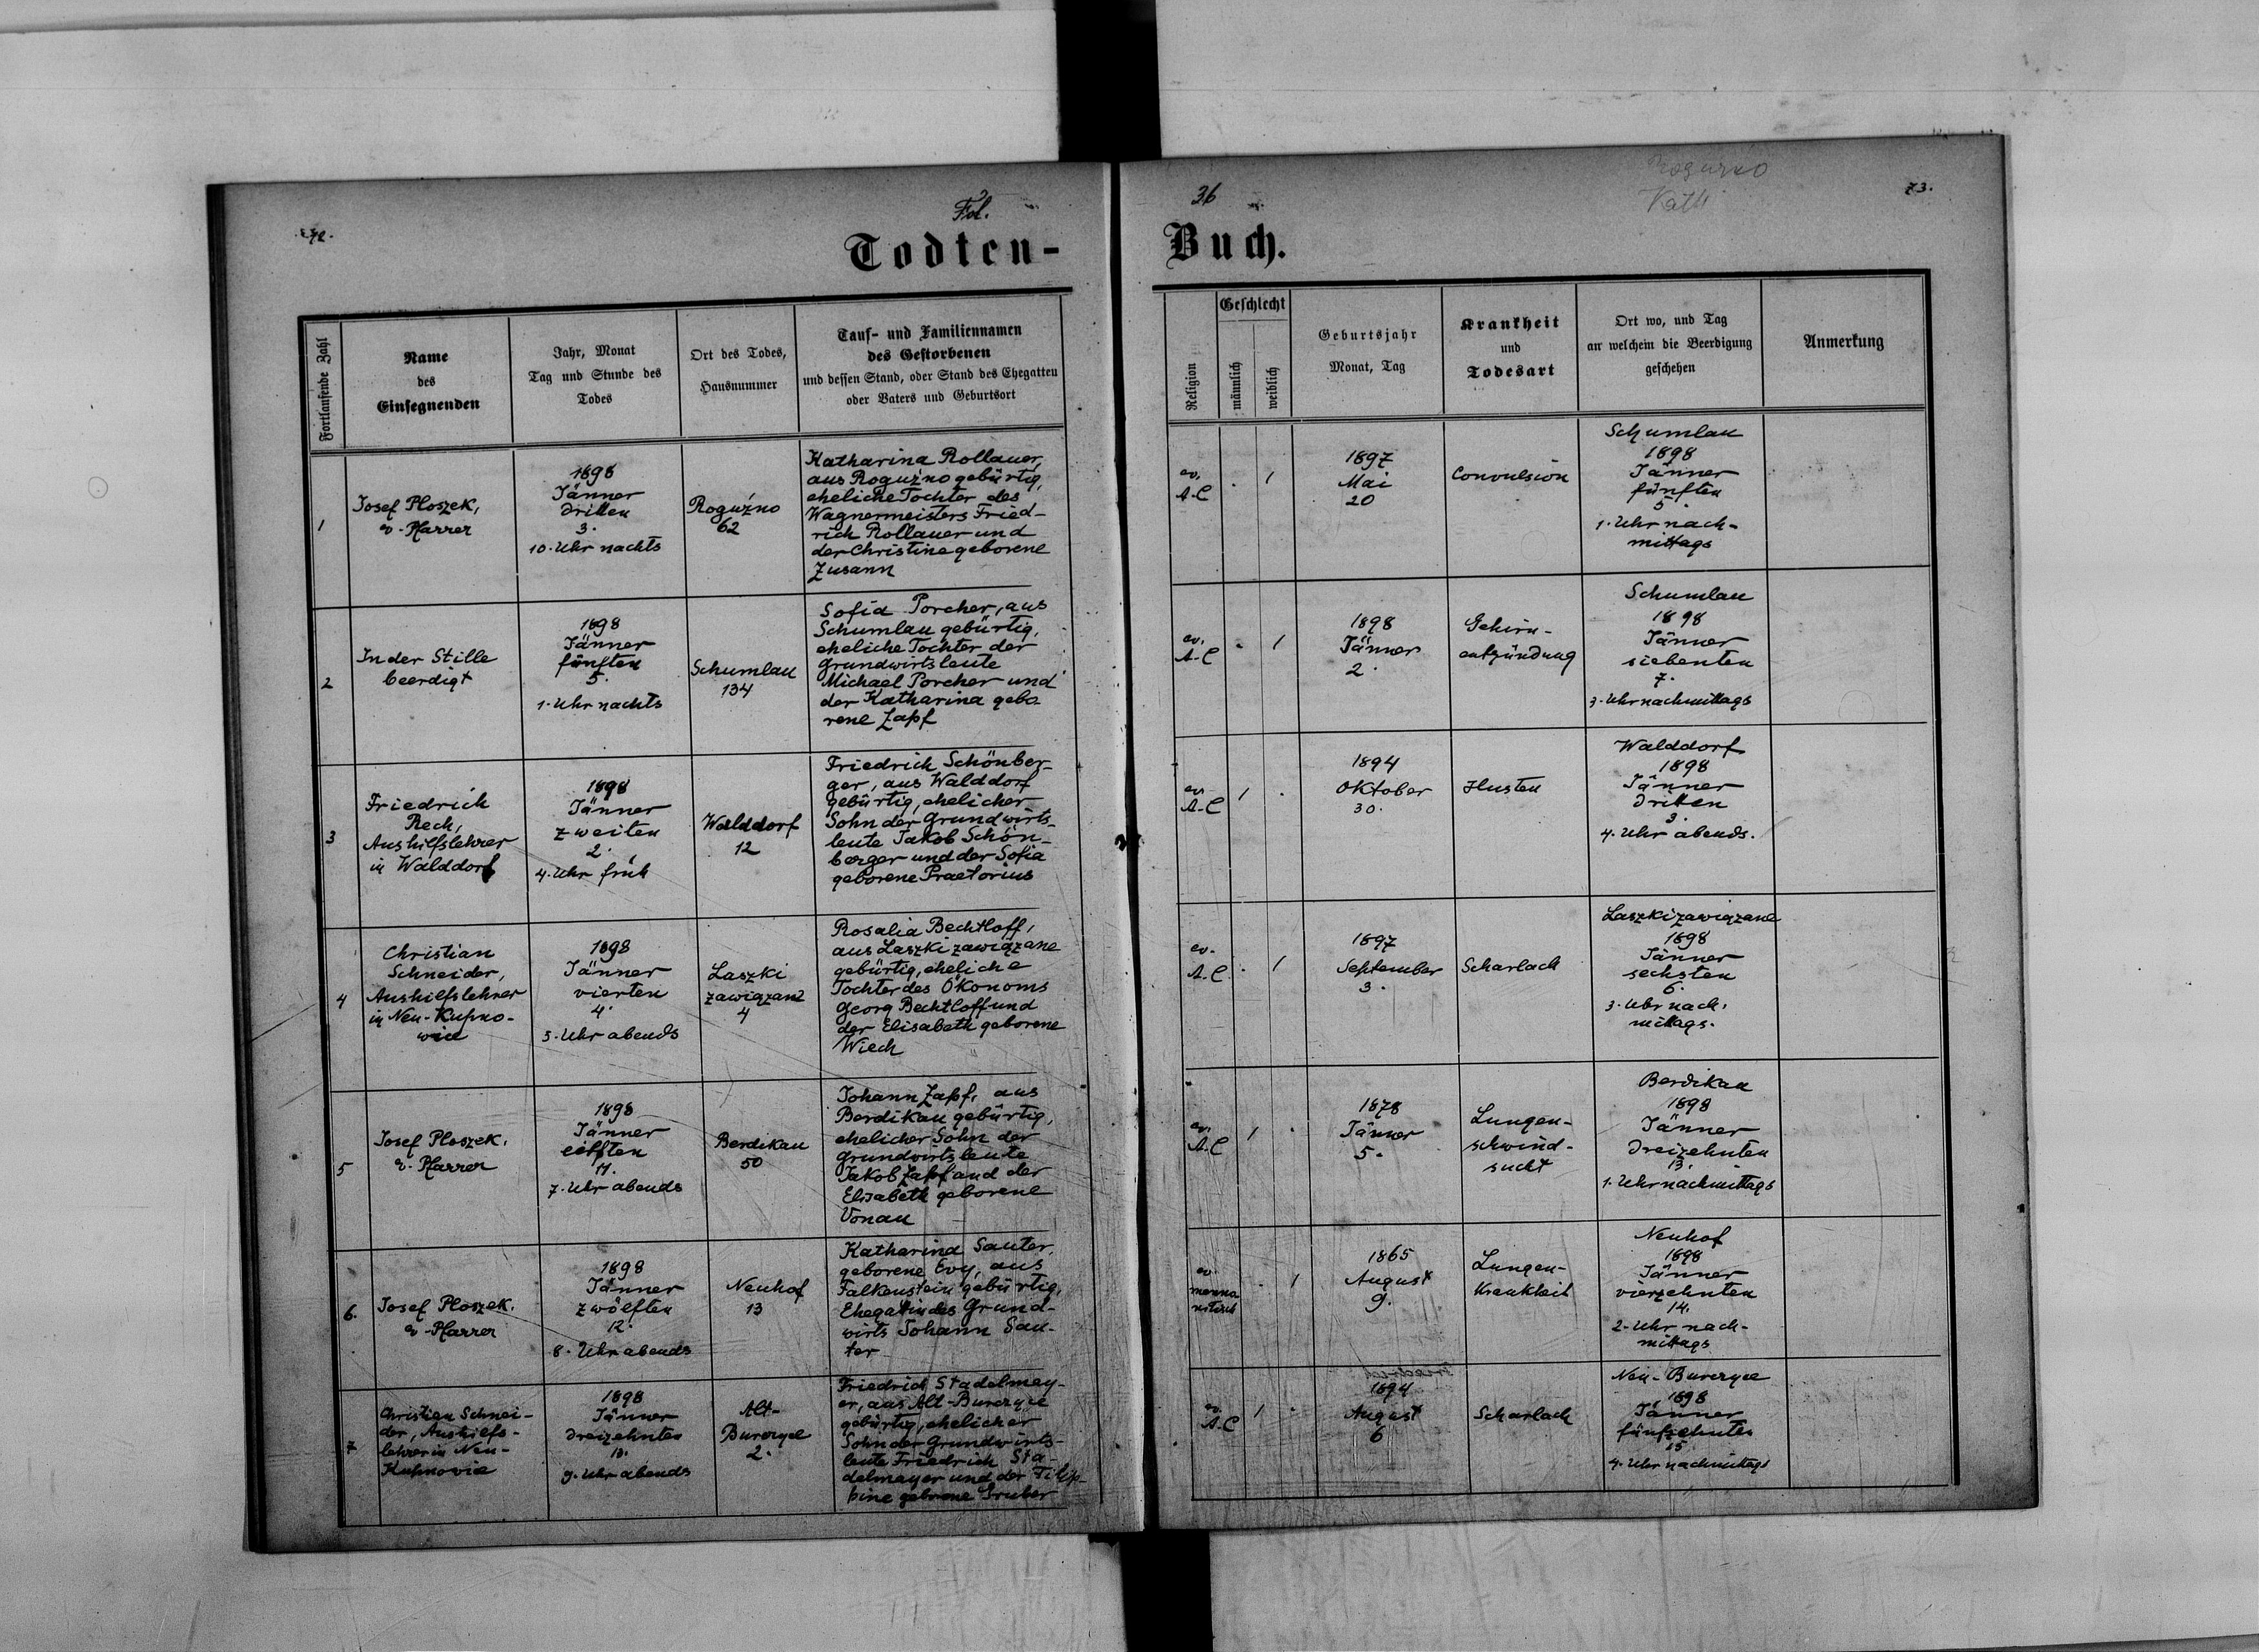 72.
Fol.
36
Rogużno
Kath
73.
Todten-
Buch.
Fortlaufende Zahl
Name
des
Einsegnenden
Jahr, Monat
Tag und Stunde des
Todes
Ort des Todes,
Hausnummer
Tauf- und Familiennamen
des Gestorbenen
und dessen Stand, oder Stand des Ehegatten
oder Vaters und Geburtsort
Religion
Geschlecht
männlich
weiblich
Geburtsjahr
Monat, Tag
Krankheit
und
Todesart
Ort wo, und Tag
an welchem die Beerdigung
geschehen
Anmerkung
1
Josef Ploszek,
ev. Pfarrer
1898
Jänner
dritten
3.
10. Uhr nachts
Rogużno
62
Katharina Rollauer,
aus Rogużno gebürtig,
eheliche Tochter des
Wagnermeisters Fried-
rich Rollauer und
der Christine geborene
Zusann
ev.
A.C
.
1
1897
Mai
20
Convulsion
Schumlau
1898
Jänner
fünften
5.
1. Uhr nach-
mittags
2
In der Stille
beerdigt
1898
Jänner
fünften
5.
1. Uhr nachts
Schumlau
134
Sofia Porcher, aus
Schumlau gebürtig,
eheliche Tochter der
Grundwirtsleute
Michael Porcher und
der Katharina gebo-
rene Zapf
ev.
A.C
.
1
1898
Jänner
2.
Gehirn-
entzündung
Schumlau
1898
Jänner
siebenten
7.
3. Uhr nachmittags
3
Friedrich
Rech,
Aushilfslehrer
in Walddorf
1898
Jänner
zweiten
2.
4. Uhr früh
Walddorf
12
Friedrich Schönber-
ger, aus Walddorf
gebürtig, ehelicher
Sohn der Grundwirts-
leute Jakob Schön-
berger und der Sofia
geborene Praetorius
ev.
A.C
1
.
1894
Oktober
30.
Husten
Walddorf
1898
Jänner
dritten
3.
4. Uhr abends.
4
Christian
Schneider,
Aushilfslehrer
in Neu-Kupno-
wice
1898
Jänner
vierten
4.
5. Uhr abends
Laszki
zawiązane
4
Rosalia Bechtloff,
aus Laszki zawiązane
gebürtig, eheliche
Tochter des Ökonoms
Georg Bechtloff und
der Elisabeth geborene
Wiech
ev.
A.C
.
1
1897
September
3.
Scharlach
Laszki zawiązane
1898
Jänner
sechsten
6.
3. Uhr nach-
mittags.
5
Josef Ploszek.
ev. Pfarrer
1898
Jänner
eilften
11.
7. Uhr abends
Berdikau
50
Johann Zapf, aus
Berdikau gebürtig,
ehelicher Sohn der
Grundwirtsleute
Jakob Zapf und der
Elisabeth geborene
Vonau
ev.
A.C
1
.
1878
Jänner
5.
Lungen-
schwind-
sucht
Berdikau
1898
Jänner
dreizehnten
13.
1. Uhr nachmittags
6.
Josef Ploszek.
ev. Pfarrer
1898
Jänner
zwölften
12.
8. Uhr abends
Neuhof
13
Katharina Sauter,
geborene Evy, aus
Falkenstein gebürtig,
Ehegattin des Grund-
wirts Johann Sau-
ter
ev.
menno
nitisch
.
1
1865
August
9.
Lungen-
krankheit
Neuhof
1898
Jänner
vierzehnten
14.
2. Uhr nach-
mittags
7
Christian Schnei-
der, Aushilfs-
lehrer in Neu-
Kupnovice
1898
Jänner
dreizehnten
13.
9. Uhr abends
Alt-
Burczyce
2.
Friedrich Stadelmey-
er, aus Alt-Burczyce
gebürtig, ehelicher
Sohn der Grundwirts-
leute Friedrich Sta-
delmayer und der Filip-
pine geborene Gruber
ev.
A.C
1
.
1894
August
6
Scharlach
Neu-Burczyce
1898
Jänner
fünfzehnten
15
4. Uhr nachmittags